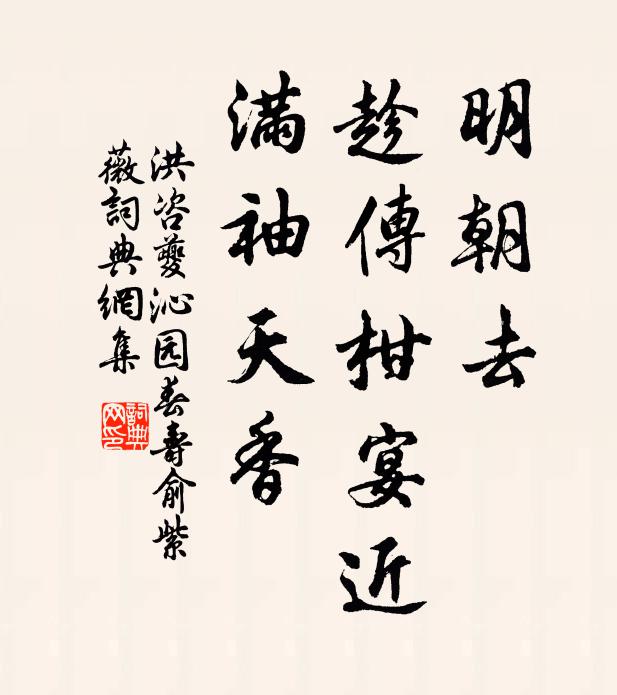 明朝去
趁傳柑宴近
滿袖天香
洪咨夔沁园春壽俞紫
薇詞典網集
詞典
网印